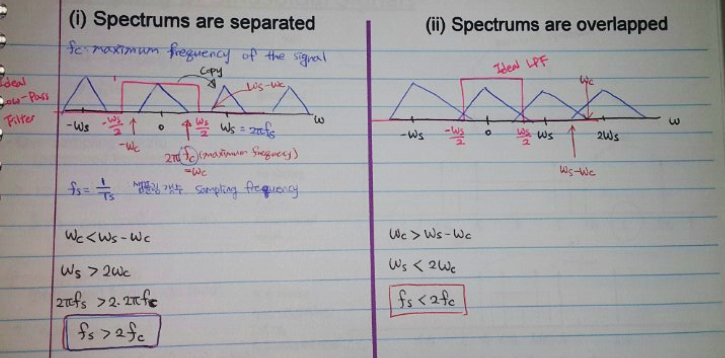 (i) Spectrums are separated
fc: maximum frequency of the signal
Ideal Low-Pass Filter
copy
ws-wc
-ws
-ws/2
0
ws/2
ws = 2πfs
w
-wc
2πfc (maximum frequency)
=wc
fs = 1/Ts 샘플링 갯수 sampling frequency
wc < ws - wc
ws > 2wc
2πfs > 2·2πfc
fs > 2fc
(ii) Spectrums are overlapped
Ideal LPF
wc
-ws
-ws/2
0
ws/2
ws
2ws
w
ws-wc
wc > ws - wc
ws < 2wc
fs < 2fc